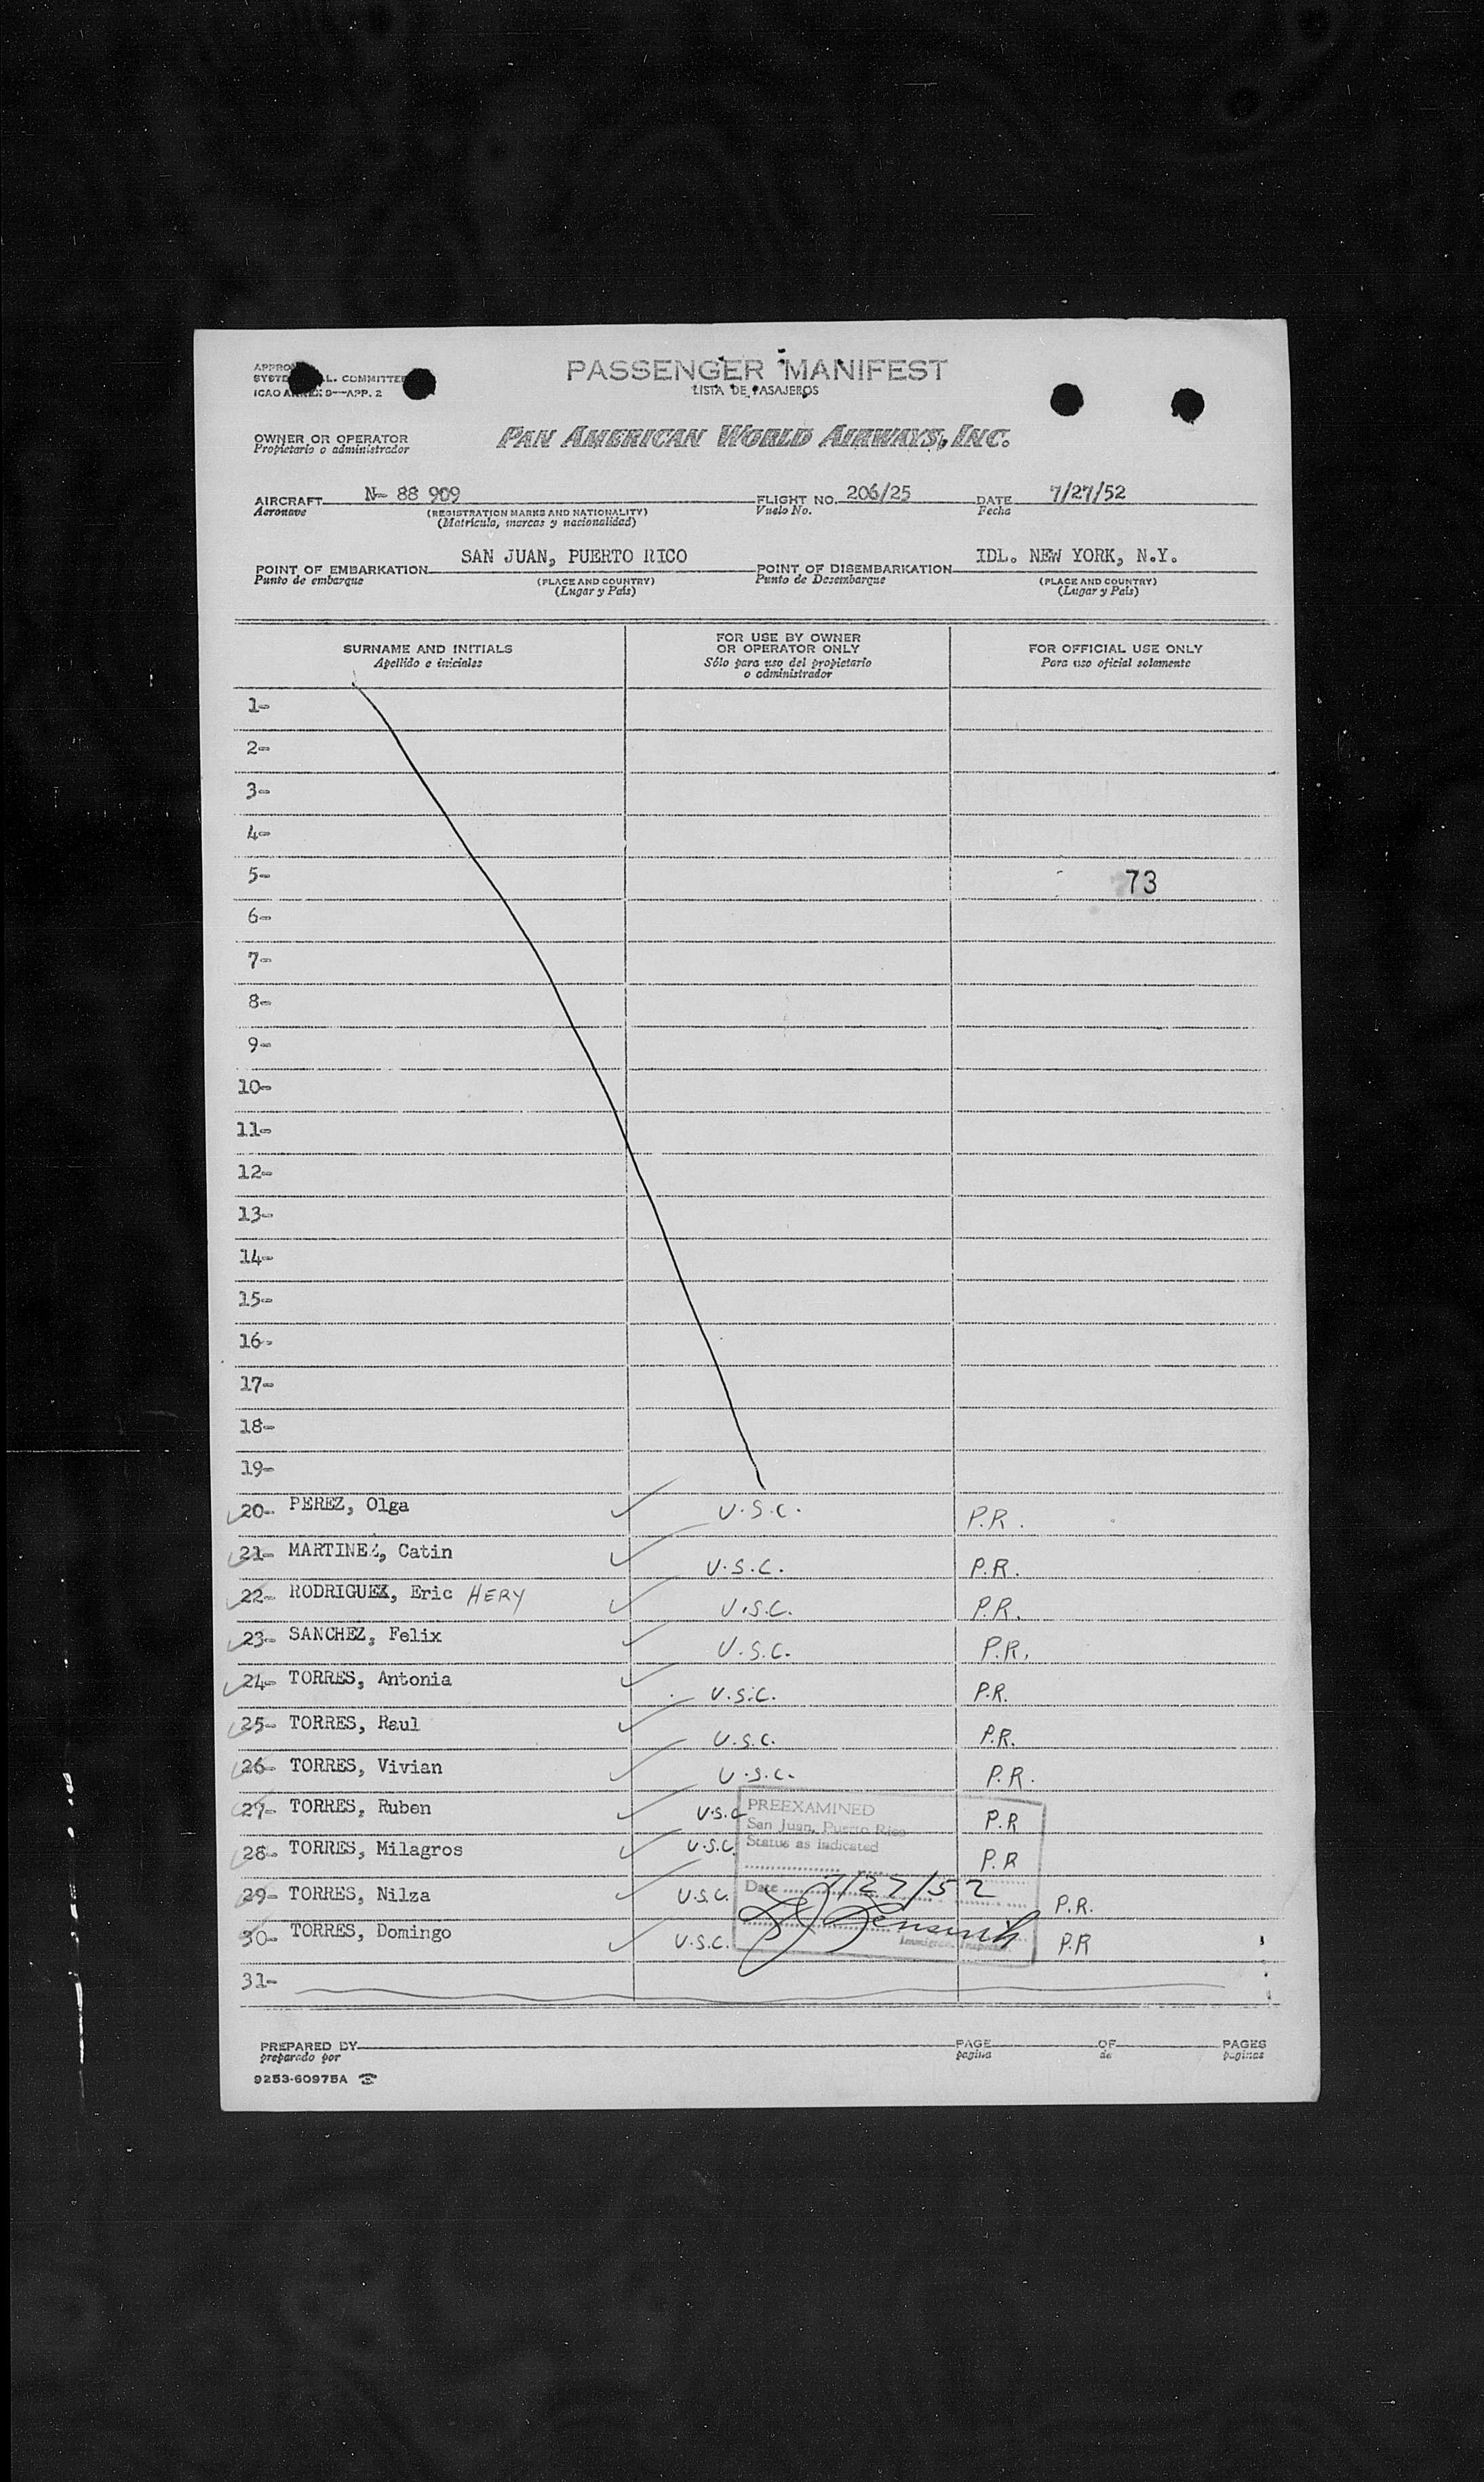 PASSENGER MANIFEST
LISTA DE PASAJEROS
L. COMMITTEE
ICAO ANNEX 9—APP. 2
OWNER OR OPERATOR PAN AMERICAN WORLD AIRWAYS, INC.
Propietario o administrador
AIRCRAFT N- 88 909 FLIGHT NO. 206/25 DATE 7/27/52
Aeronave (REGISTRATION MARKS AND NATIONALITY) Vuelo No. Fecha
(Matrícula, marcas y nacionalidad)
POINT OF EMBARKATION SAN JUAN, PUERTO RICO POINT OF DISEMBARKATION IDL. NEW YORK, N.Y.
Punto de embarque (PLACE AND COUNTRY) Punto de Desembarque (PLACE AND COUNTRY)
(Lugar y País) (Lugar y País)
SURNAME AND INITIALS FOR USE BY OWNER OR OPERATOR ONLY FOR OFFICIAL USE ONLY
Apellido e iniciales Sólo para uso del propietario o administrador Para uso oficial solamente
1-
2-
3-
4-
5- 73
6-
7-
8-
9-
10-
11-
12-
13-
14-
15-
16-
17-
18-
19-
20- PEREZ, Olga U.S.C. P.R.
21- MARTINEZ, Catin U.S.C. P.R.
22- RODRIGUEZ, Eric HERY U.S.C. P.R.
23- SANCHEZ, Felix U.S.C. P.R.
24- TORRES, Antonia U.S.C. P.R.
25- TORRES, Raul U.S.C. P.R.
26- TORRES, Vivian U.S.C. P.R.
27- TORRES, Ruben U.S.C P.R
28- TORRES, Milagros U.S.C. P.R
29- TORRES, Nilza U.S.C. P.R.
30- TORRES, Domingo U.S.C. P.R
31-
PREEXAMINED
San Juan, Puerto Rico
Status as indicated
Date 7/27/52
Immigrant Inspector
PREPARED BY PAGE OF PAGES
preparado por pagina de paginas
9253-60975A